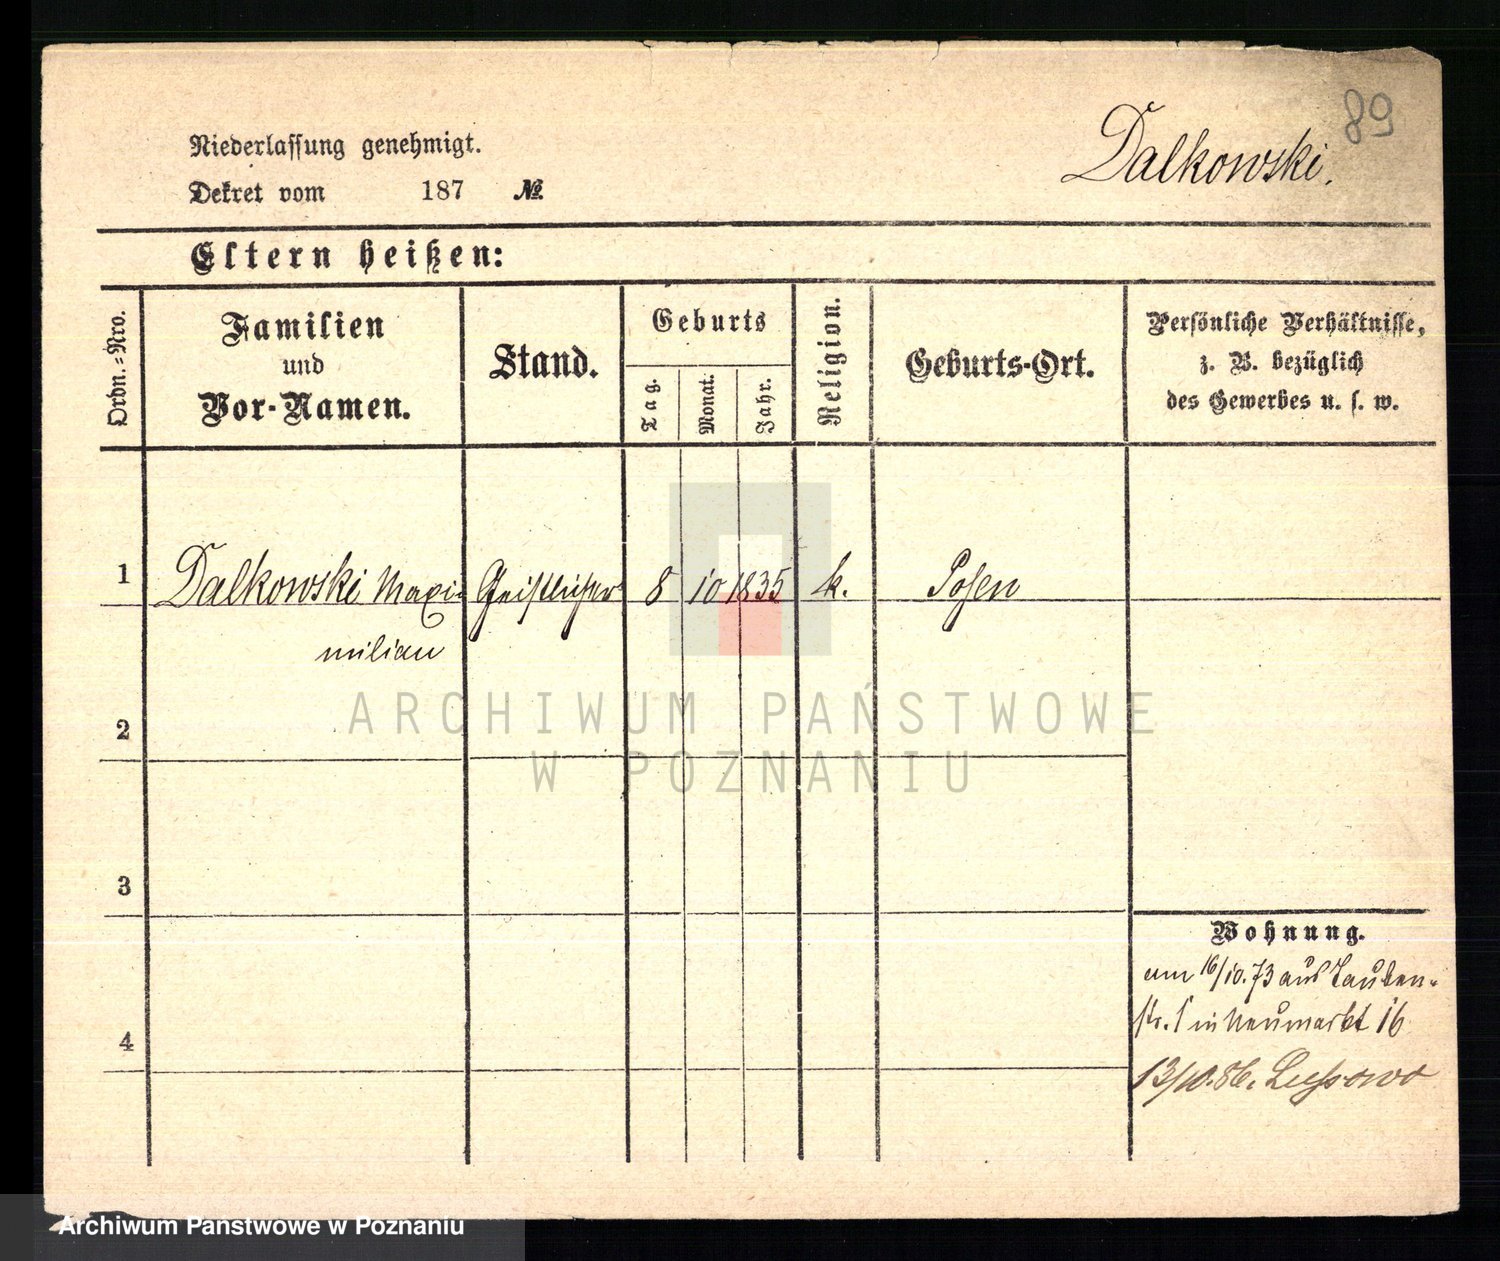 89
Niederlassung genehmigt.
Dekret vom 187 №.
Dalkowski.
Eltern heißen:
Ordn.-Nro.
Familien
und
Vor-Namen.
Stand.
Geburts
Tag.
Monat.
Jahr.
Religion.
Geburts-Ort.
Persönliche Verhältnisse,
z. B. bezüglich
des Gewerbes u. s. w.
1 Dalkowski Maxi- Geistlicher 8 10 1835 k. Posen
milian
ARCHIWUM PAŃSTWOWE
W POZNANIU
2
3
4
Wohnung.
am 16/10.73 aus Tauben-
str. 1 in Neumarkt 16
13/10.86. Lussowo
Archiwum Państwowe w Poznaniu